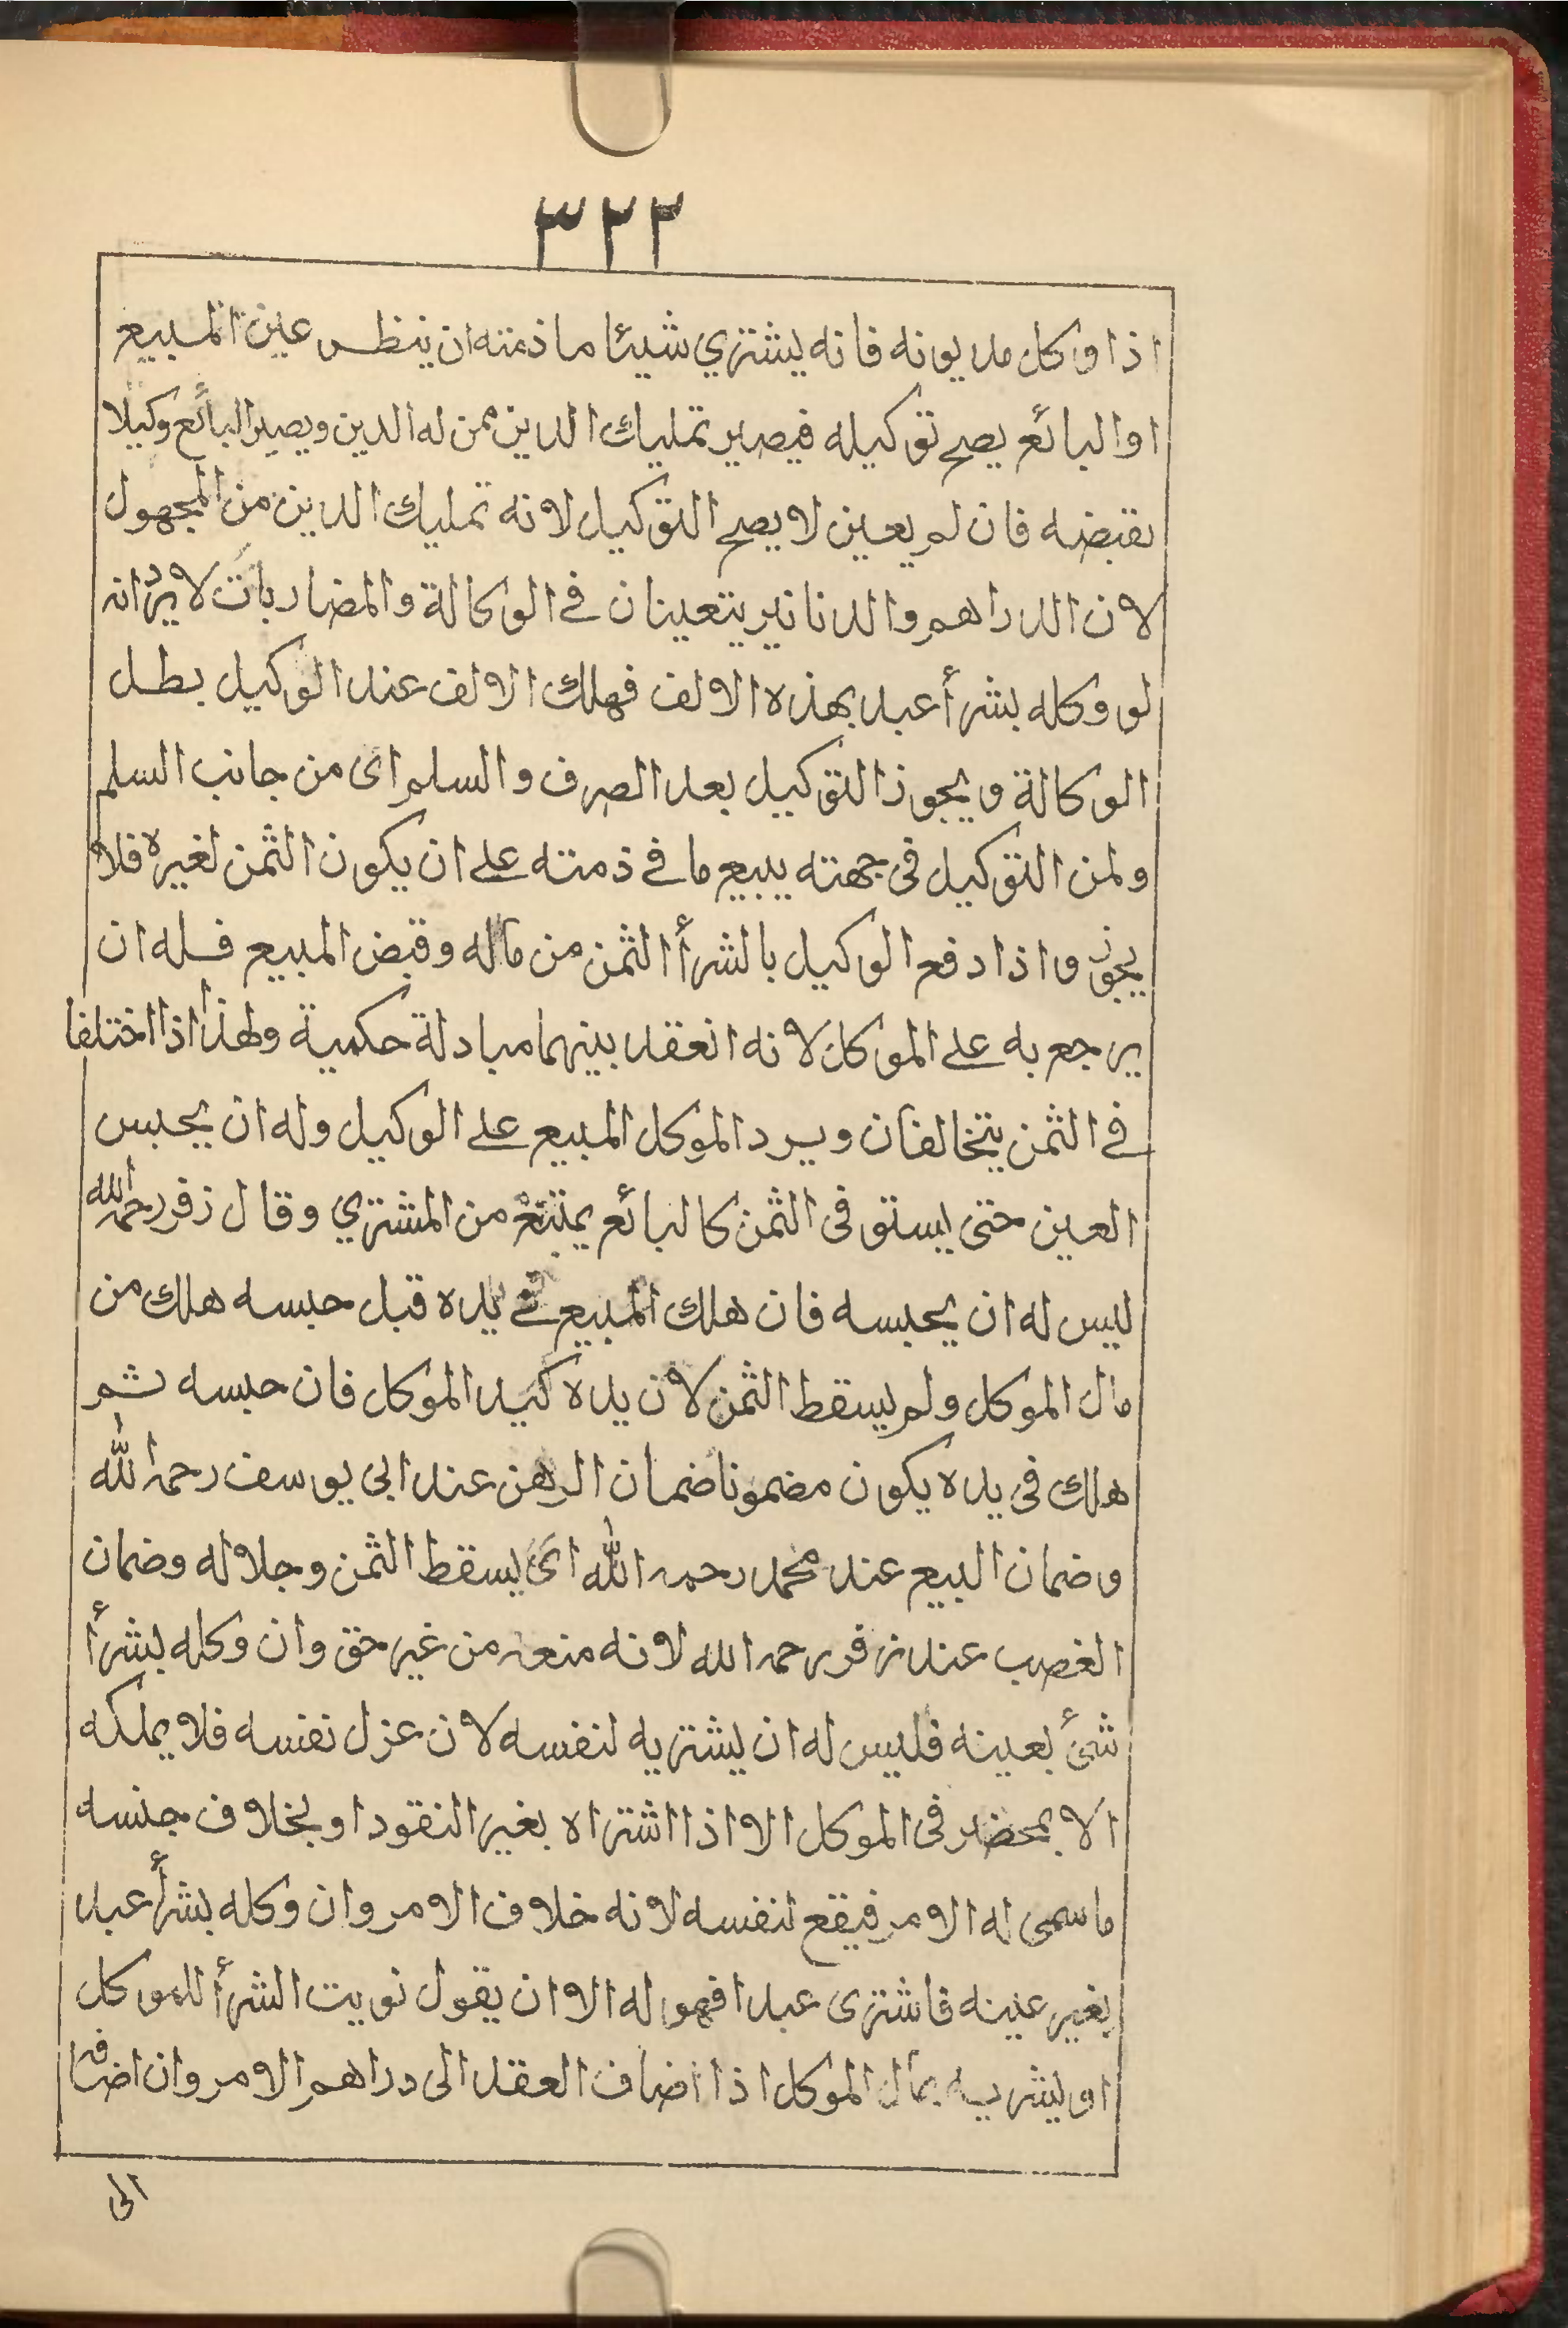 ٣٢٢
اذا وكل مديونه فانه يشتري شيئا ماذمته ان ينظر عين المبيع
او البائع يصح توكيله فيصير تمليك الدين ممن له الدين ويصير البائع وكيلا
بقبضه فان لم يعين لا يصح التوكيل لانه تمليك الدين من المجهول
لان الدراهم والدنانير يتعينان في الوكالة والمضاربات لا يرد انه
لو وكله بشرأ عبد بهذه الالف فهلك الالف عند الوكيل بطل
الوكالة ويجوز التوكيل بعد الصرف والسلم اى من جانب السلم
ولمن التوكيل في جهته يبيع ما في ذمته على ان يكون الثمن لغيره فلا
يجوز واذا دفع الوكيل بالشرأ الثمن من ماله وقبض المبيع فله ان
يرجع به على الموكل لانه انعقد بينهما مبادلة حكمية ولهذا اذا اختلفا
في الثمن يتخالفان ويرد الموكل المبيع على الوكيل وله ان يحبس
العين حتى يستوفى الثمن كالبائع يمتنع من المشتري وقال زفر رحمه الله
ليس له ان يحبسه فان هلك المبيع في يده قبل حبسه هلك من
مال الموكل ولم يسقط الثمن لان يده كيد الموكل فان حبسه ثم
هلك في يده يكون مضمونا ضمان الرهن عند ابى يوسف رحمه الله
وضمان البيع عند محمد رحمه الله اى يسقط الثمن وجلاله وضمان
الغصب عند زفر رحمه الله لانه منعه من غير حق وان وكله بشرأ
شئ بعينه فليس له ان يشتريه لنفسه لان عزل نفسه فلا يملكه
الا بمحضر في الموكل الا اذا اشتراه بغير النقود او بخلاف جنسه
ما سمى له الامر فيقع لنفسه لانه خلاف الامر وان وكله بشرأ عبد
بغير عينه فاشترى عبدا فهو له الا ان يقول نويت الشرأ للموكل
او يشريه بمال الموكل اذا اضاف العقد الى دراهم الامر وان اضافه
الى